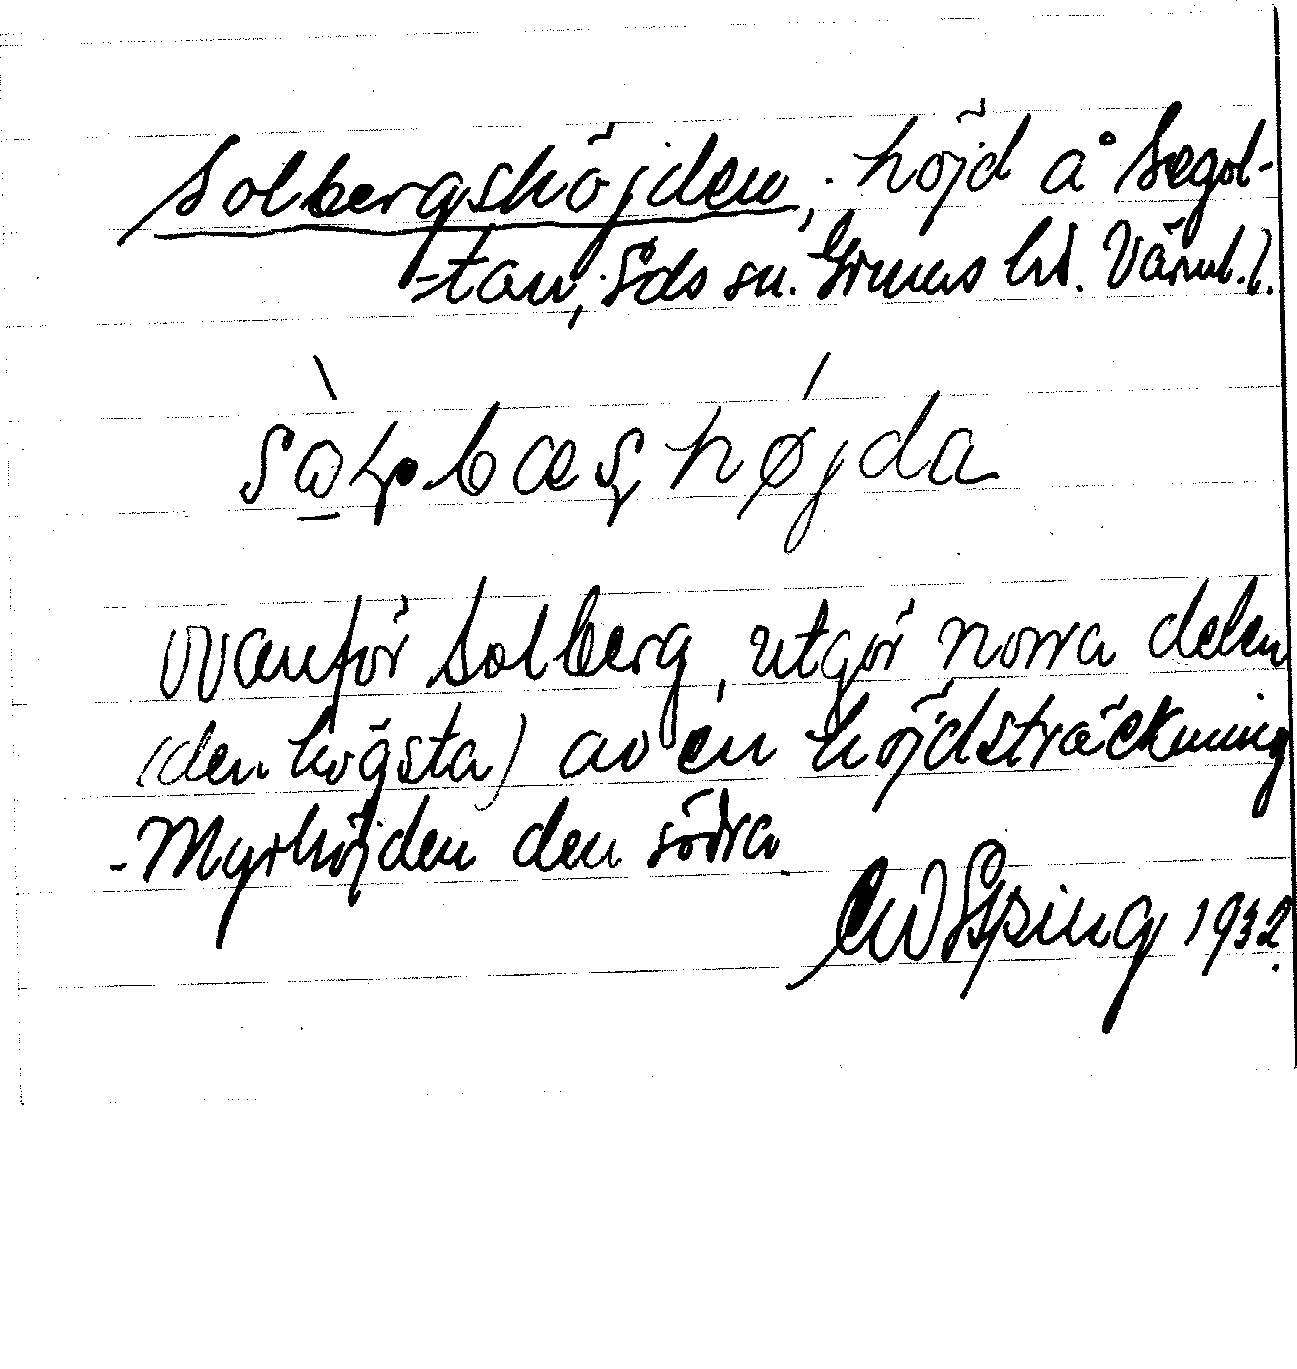 Solbergshöjden, höjd å Segol-
-tan, Eds sn. Grums hd. Värml. l.
sòlbæʂhǿjda
ovanför Solberg, utgör norra delen
(den högsta) av en höjdsträckning
- Myrhöjden den södra
EW Epping 1932.